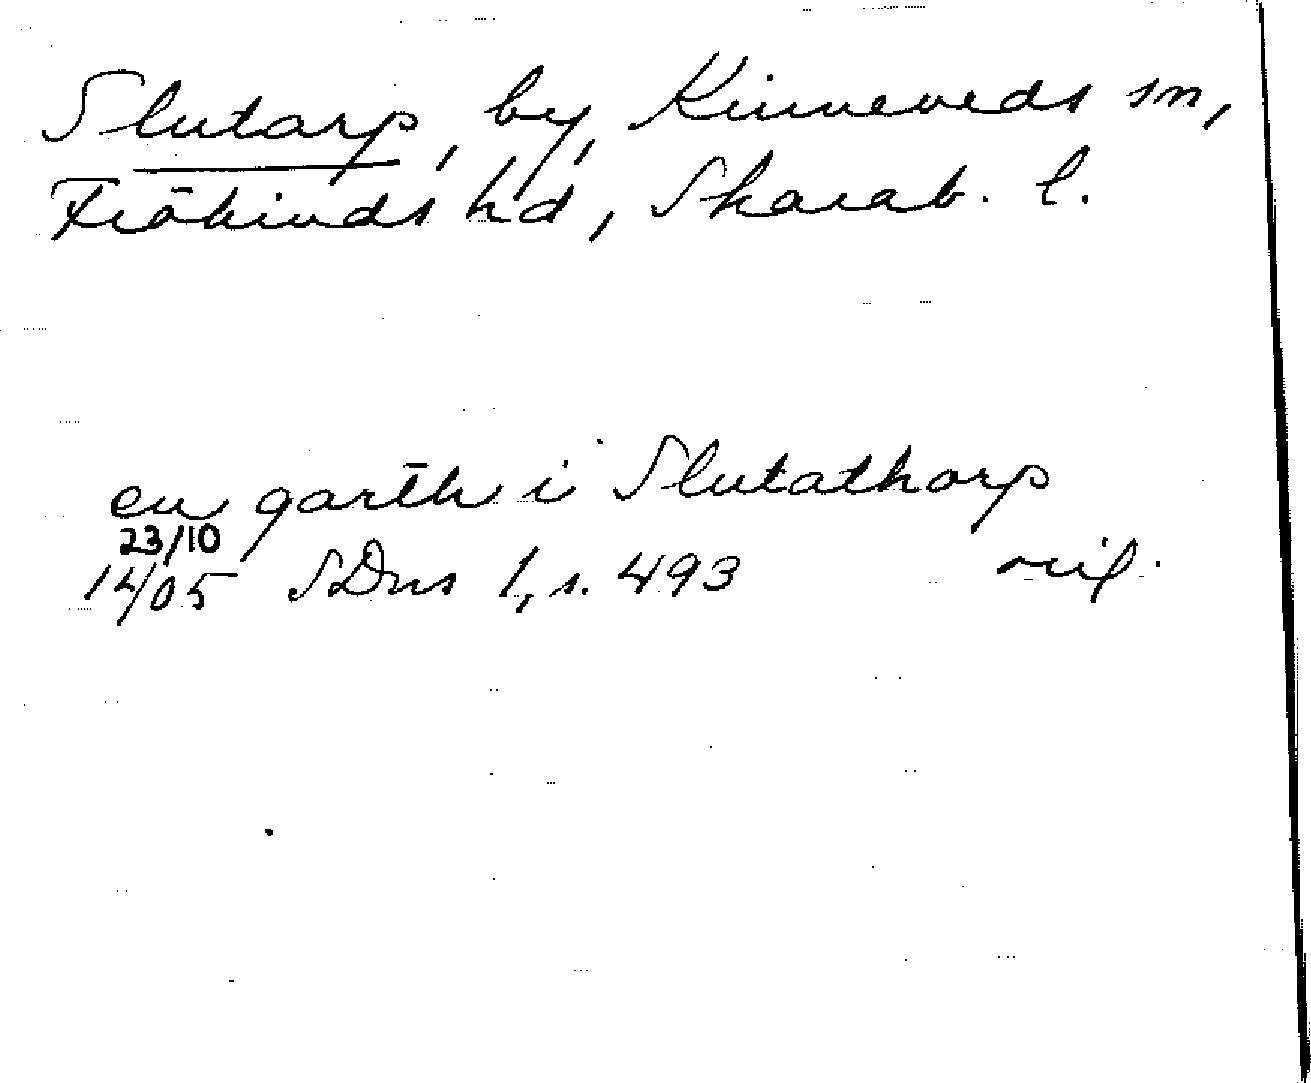 Slutarp, by, Kinneveds sn,
Frökinds hd, Skarab. l.
en garth i Slutathorp
23/10
14/05 SDns 1, s. 493 orig.